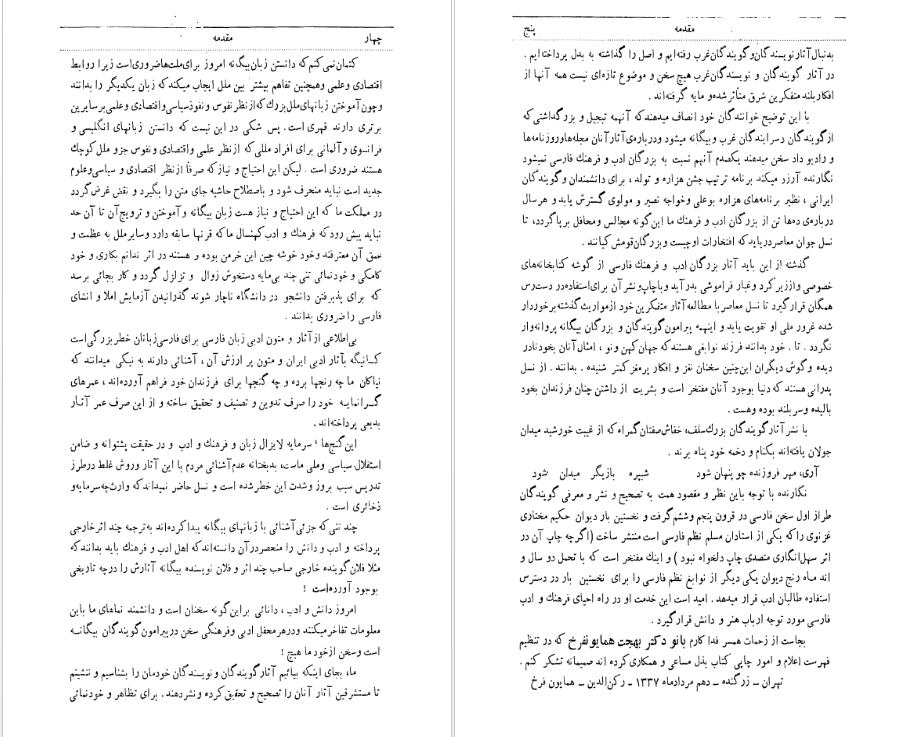 چهار
مقدمه
کتمان نمی‌کنم که دانستن زبان بیگانه امروز برای ملت‌ها ضروری است زیرا روابط
اقتصادی و علمی و همچنین تفاهم بیشتر بین ملل ایجاب میکند که زبان یکدیگر را بدانند
و چون آموختن زبانهای ملل بزرك که از نظر نفوس و نفوذ سیاسی و اقتصادی و علمی بر سایرین
برتری دارند قهری است. پس شکی در این نیست که دانستن زبانهای انگلیسی و
فرانسوی و آلمانی برای افراد مللی که از نظر علمی و اقتصادی و نفوس جزو ملل کوچك
هستند ضروری است . لیکن این احتیاج و نیاز که صرفاً از نظر اقتصادی و سیاسی و علوم
جدید است نباید منحرف شود و باصطلاح حاشیه جای متن را بگیرد و نقض غرض گردد
در مملکت ما که این احتیاج و نیاز هست زبان بیگانه و آموختن و ترویج آن تا آن حد
نباید پیش رود که فرهنك و ادب کهنسال ما که قرنها سابقه دارد و سایر ملل به عظمت و
عمق آن معترفند و خود خوشه چین این خرمن بوده و هستند در اثر ندانم بکاری و خود
کامگی و خودنمائی تنی چند بی‌مایه دستخوش زوال و تزلزل گردد و کار بجائی برسد
که برای پذیرفتن دانشجو در دانشگاه ناچار شوند گذرانیدن آزمایش املا و انشای
فارسی را ضروری بدانند .
بی‌اطلاعی از آثار و متون ادبی زبان فارسی برای فارسی‌زبانان خطر بزرگی است
کسانیکه بآثار ادبی ایران و متون پر ارزش آن ، آشنائی دارند به نیکی میدانند که
نیاکان ما چه رنجها برده و چه گنجها برای فرزندان خود فراهم آورده‌اند ، عمرهای
گرانمایه خود را صرف تدوین و تصنیف و تحقیق ساخته و از این صرف عمر آثار
بدیعی پرداخته‌اند .
این گنج‌ها ، سرمایه لایزال زبان و فرهنك و ادب و در حقیقت پشتوانه و ضامن
استقلال سیاسی و ملی ماست، بدبختانه عدم آشنائی مردم با این آثار و روش غلط در طرز
تدریس سبب بروز و شدت این خطر شده است و نسل حاضر نمیداند که وارث چه سرمایه و
ذخائری است .
چند تنی که جزئی آشنائی با زبانهای بیگانه پیدا کرده‌اند به ترجمه چند اثر خارجی
پرداخته و ادب و دانش را منحصر در آن دانسته‌اند که اهل ادب و فرهنك باید بدانند که
مثلا فلان گوینده خارجی صاحب چند اثر و فلان نویسنده بیگانه آثارش را در چه تاریخی
بوجود آورده‌است !
امروز دانش و ادب ، دانائی بر این گونه سخنان است و دانشمند نماهای ما باین
معلومات تفاخر میکنند و در هر محفل ادبی و فرهنگی سخن در پیرامون گویندگان بیگانه
است و سخن از خود ما هیچ !
ما، بجای اینکه بیائیم آثار گویندگان و نویسندگان خودمان را بشناسیم و ننشینیم
تا مستشرقین آثار آنان را تصحیح و تحقیق کرده و نشر دهند. برای تظاهر و خودنمائی
پنج
مقدمه
بدنبال آثار نویسندگان و گویندگان غرب رفته‌ایم و اصل را گذاشته به بدل پرداخته‌ایم .
در آثار گویندگان و نویسندگان غرب هیچ سخن و موضوع تازه‌ای نیست همه آنها از
افکار بلند متفکرین شرق متأثر شده و مایه گرفته‌اند .
با این توضیح خوانندگان خود انصاف میدهند که آنهمه تبجیل و بزرگداشتی که
از گویندگان و سرایندگان غرب و بیگانه میشود و درباره‌ی آثار آنان مجله‌ها و روزنامه‌ها
و رادیو داد سخن میدهند یکصدم آنهم نسبت به بزرگان ادب و فرهنك فارسی نمیشود
نگارنده آرزو میکند برنامه ترتیب جشن هزاره و تولد ، برای دانشمندان و گویندگان
ایرانی ، نظیر برنامه‌های هزاره بوعلی و خواجه نصیر و مولوی گسترش یابد و هر سال
درباره‌ی ده‌ها تن از بزرگان ادب و فرهنك ما این گونه مجالس و محافل برپا گردد، تا
نسل جوان معاصر دریابد که افتخارات او چیست و بزرگان قومش کیانند .
گذشته از این باید آثار بزرگان ادب و فرهنك فارسی از گوشه کتابخانه‌های
خصوصی و از زیر گرد و غبار فراموشی بدر آید و با چاپ و نشر آن برای استفاده در دسترس
همگان قرار گیرد تا نسل معاصر با مطالعه آثار متفکرین خود از مواریث گذشته برخوردار
شده غرور ملی او تقویت یابد و اینهمه پیرامون گویندگان و بزرگان بیگانه پروانه‌وار
نگردد . تا . خود بدانند فرزند نوابغی هستند که جهان کهن و نو ، امثال آنان بخود نادر
دیده و گوش دیگران این‌چنین سخنان نغز و افکار پرمغز کمتر شنیده . بدانند . از نسل
پدرانی هستند که دنیا بوجود آنان مفتخر است و بشریت از داشتن چنان فرزندان بخود
بالیده و سربلند بوده و هست .
با نشر آثار گویندگان بزرك سلف، خفاش صفتان گمراه که از غیبت خورشید میدان
جولان یافته‌اند بکنام و دخمه خود پناه برند .
آری، مهر فروزنده چو پنهان شود شبپره بازیگر میدان شود
نگارنده با توجه باین نظر و مقصود همت به تصحیح و نشر و معرفی گویندگان
طراز اول سخن فارسی در قرون پنجم و ششم گرفت و نخستین بار دیوان حکیم مختاری
غزنوی را که یکی از استادان مسلم نظم فارسی است منتشر ساخت (اگرچه چاپ آن در
اثر سهل‌انگاری متصدی چاپ دلخواه نبود ) و اینك مفتخر است که با تحمل دو سال و
اند ماه رنج دیوان یکی دیگر از نوابغ نظم فارسی را برای نخستین بار در دسترس
استفاده طالبان ادب قرار میدهد. امید است این خدمت او در راه احیای فرهنك و ادب
فارسی مورد توجه ارباب هنر و دانش قرار گیرد .
بجاست از زحمات همسر فداکارم بانو دکتر بهجت همایونفرخ که در تنظیم
فهرست اعلام و امور چاپی کتاب بذل مساعی و همکاری کرده اند صمیمانه تشکر کنم .
تهران ـ زرگنده ـ دهم مردادماه ۱۳۳۷ ـ رکن‌الدین ـ همایون فرخ